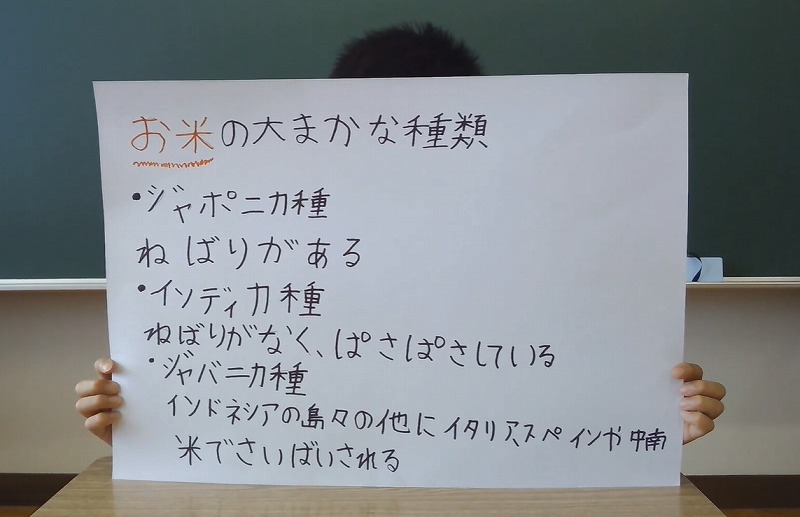 お米の大まかな種類
・ジャポニカ種
ねばりがある
・インディカ種
ねばりがなく、ぱさぱさしている
・ジャバニカ種
インドネシアの島々の他にイタリア、スペインや中南
米でさいばいされる